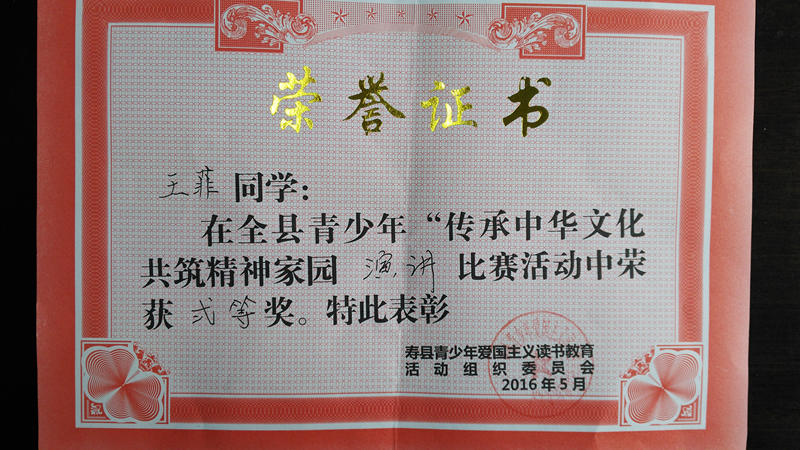 荣誉证书
王菲 同学：
在全县青少年“传承中华文化
共筑精神家园 演讲 比赛活动中荣
获 弍等 奖。特此表彰
寿县青少年爱国主义读书教育
活动组织委员会
2016年5月